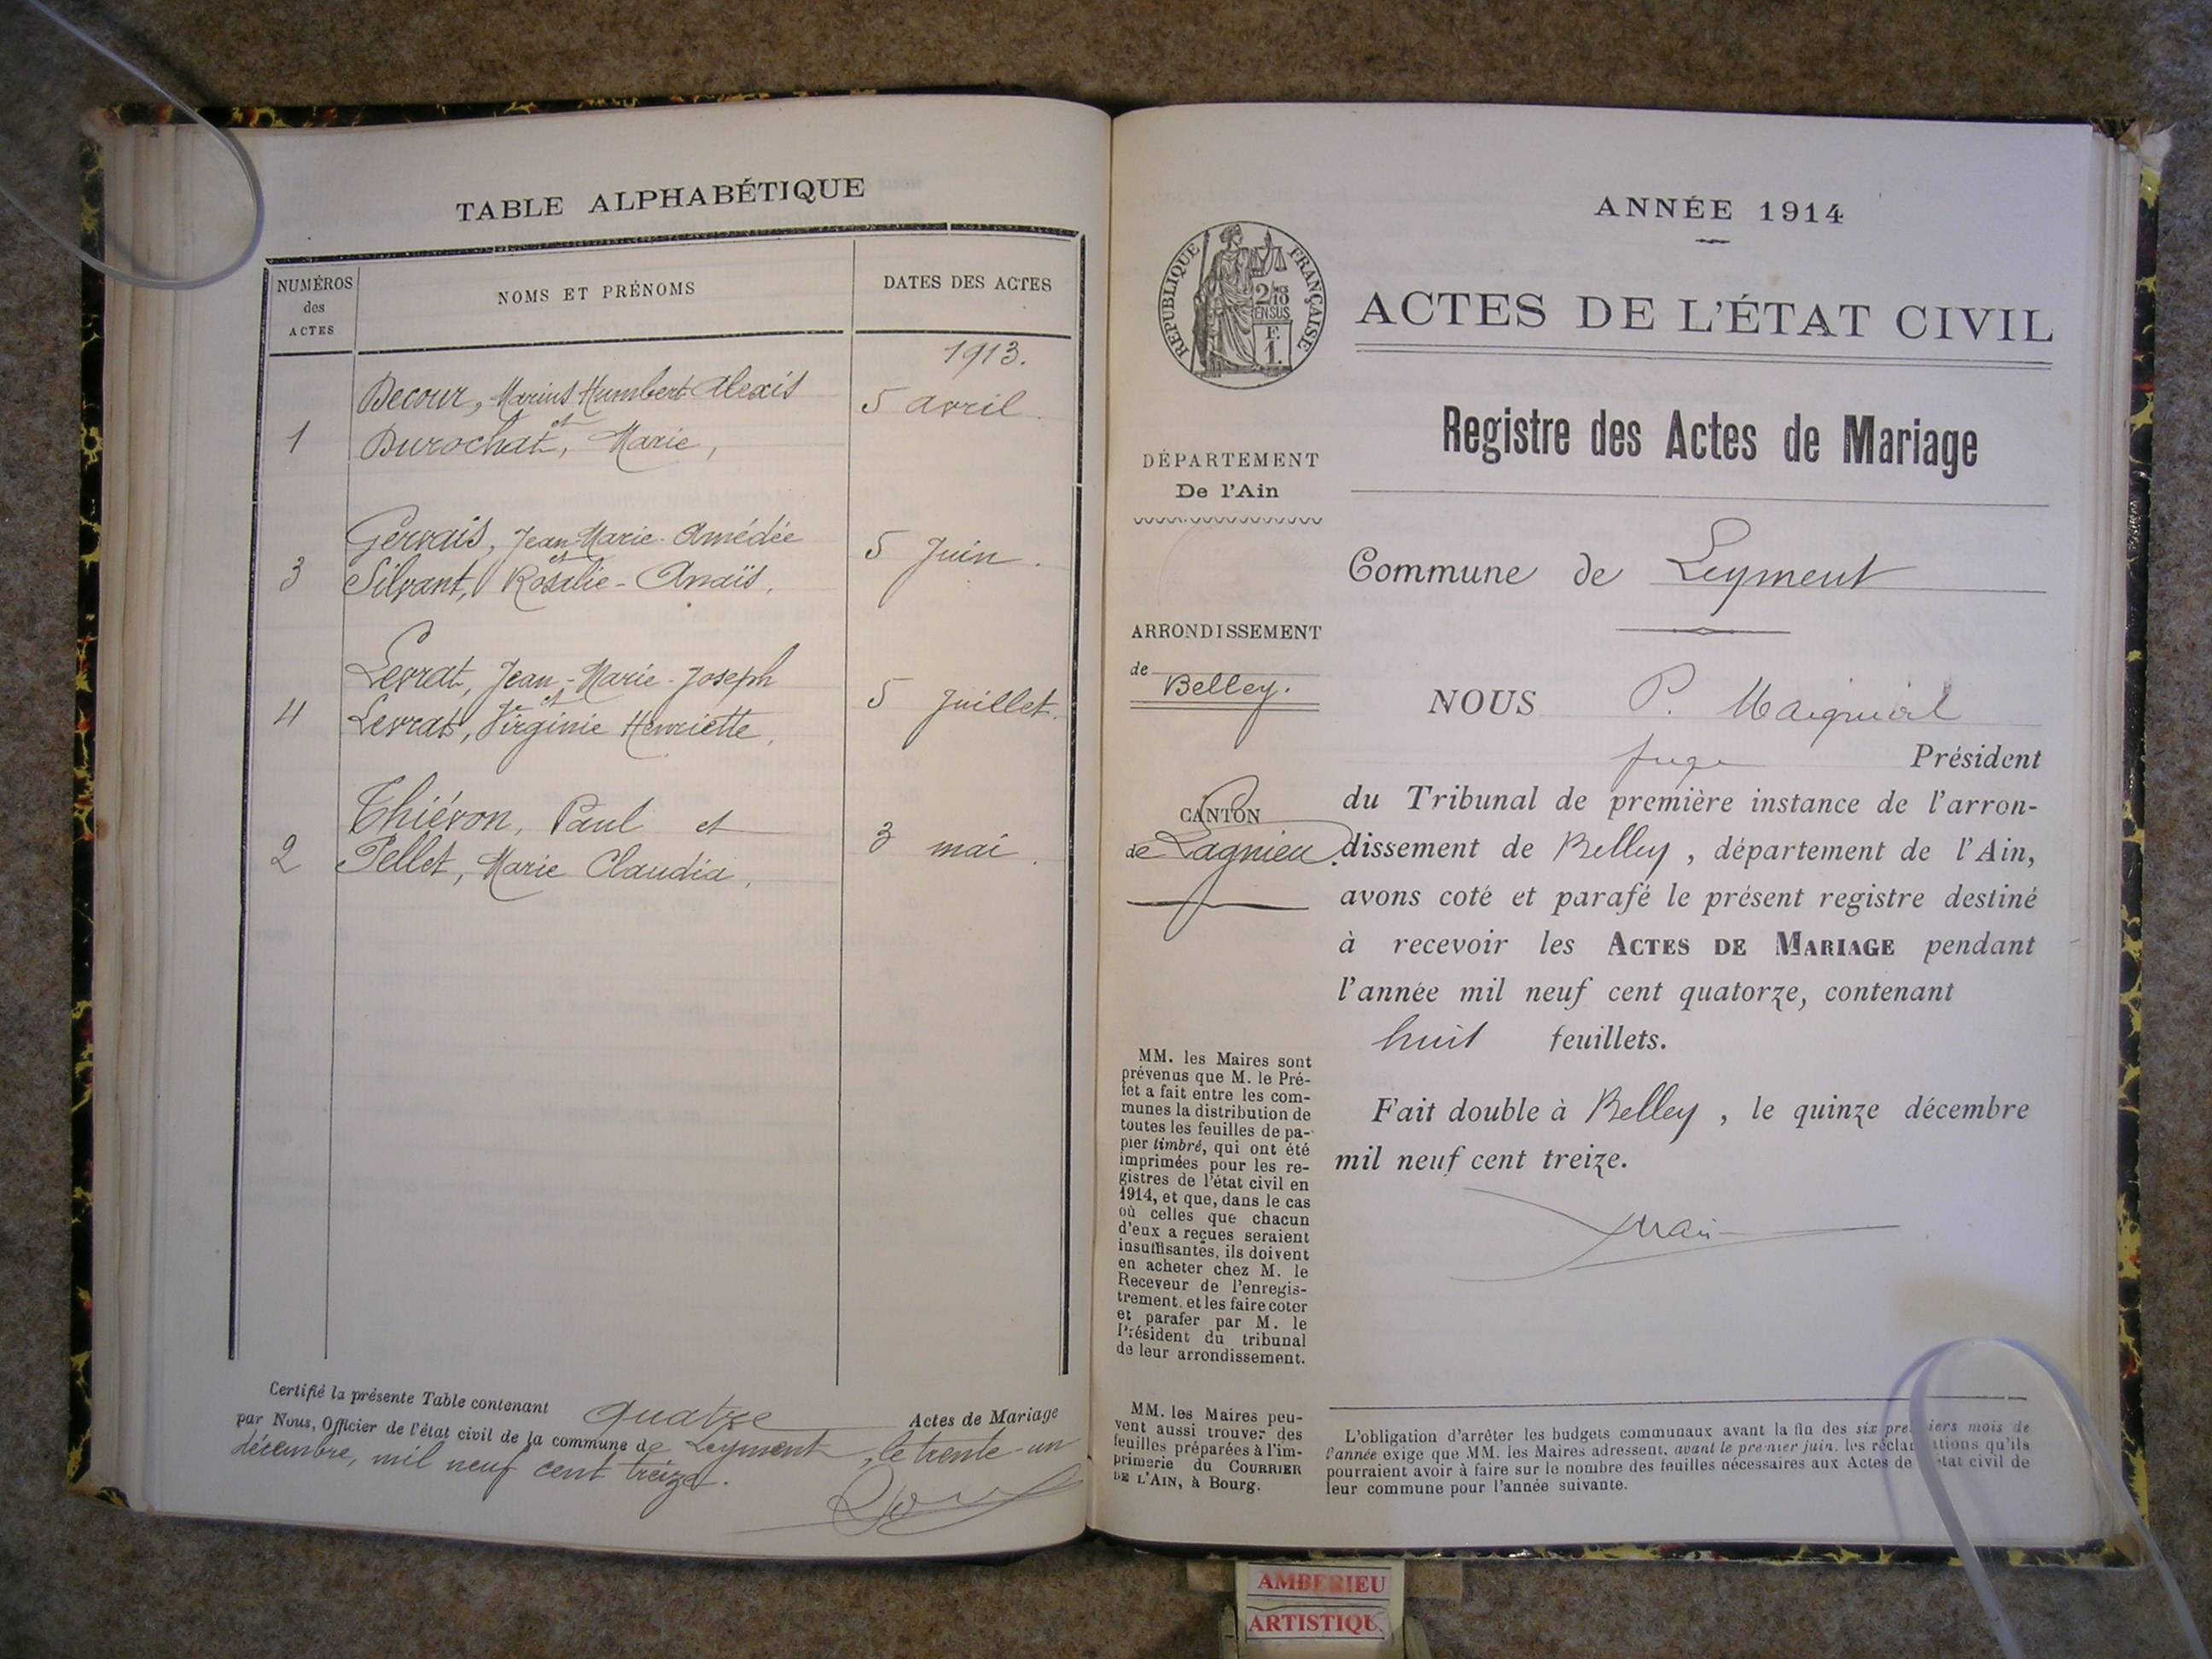 TABLE ALPHABÉTIQUE
NUMÉROS
des
ACTES
NOMS ET PRÉNOMS
DATES DES ACTES
1913.
Decour, Marius Humbert Alexis
et
5 avril.
1 Durochat, Marie,
Gervais, Jean-Marie-Amédée
et
5 Juin.
3 Silvant, Rosalie-Anaïs,
Levrat, Jean-Marie-Joseph
et
5 Juillet.
4 Levrat, Virginie Henriette,
Thiévon, Paul et
3 mai.
2 Pellet, Marie Claudia,
Certifié la présente Table contenant quatre Actes de Mariage
par Nous, Officier de l'état civil de la commune de Leyment, le trente-un
décembre, mil neuf cent treize.
ANNÉE 1914
RÉPUBLIQUE FRANÇAISE
2/10
EN SUS
F.
1.
ACTES DE L'ÉTAT CIVIL
Registre des Actes de Mariage
DÉPARTEMENT
De l'Ain
Commune de Leyment
ARRONDISSEMENT
de Belley.
NOUS P.
juge Président
CANTON
de Lagnieu.
du Tribunal de première instance de l'arron-
dissement de Belley, département de l'Ain,
avons coté et parafé le présent registre destiné
à recevoir les ACTES DE MARIAGE pendant
l'année mil neuf cent quatorze, contenant
huit feuillets.
Fait double à Belley, le quinze décembre
mil neuf cent treize.
MM. les Maires sont
prévenus que M. le Pré-
fet a fait entre les com-
munes la distribution de
toutes les feuilles de pa-
pier timbré, qui ont été
imprimées pour les re-
gistres de l'état civil en
1914, et que, dans le cas
où celles que chacun
d'eux a reçues seraient
insuffisantes, ils doivent
en acheter chez M. le
Receveur de l'enregis-
trement, et les faire coter
et parafer par M. le
Président du tribunal
de leur arrondissement.
MM. les Maires peu-
vent aussi trouver des
feuilles préparées à l'im-
primerie du COURRIER
DE L'AIN, à Bourg.
L'obligation d'arrêter les budgets communaux avant la fin des six premiers mois de
l'année exige que MM. les Maires adressent, avant le premier juin, les réclamations qu'ils
pourraient avoir à faire sur le nombre des feuilles nécessaires aux Actes de l'état civil de
leur commune pour l'année suivante.
AMBERIEU
ARTISTIQU